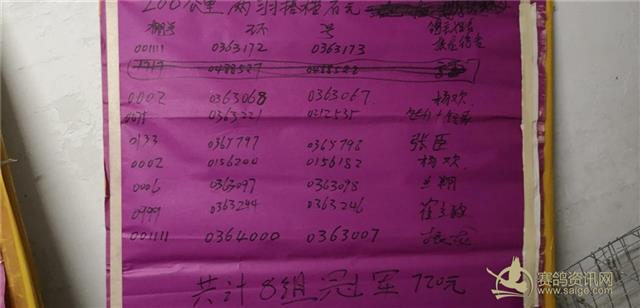 200公里两羽指指
棚号 环 号
001111 0363172 0363173
0002 0363068 0363067 杨欢
0363221 0212535
0133 0364797 0364798 张臣
0002 0156200 0156182 杨欢
0006 0363097 0363098 兰翔
0999 0363244 0363246
001111 0364000 0363007
共计8组冠军720元
赛鸽资讯网
www.saige.com